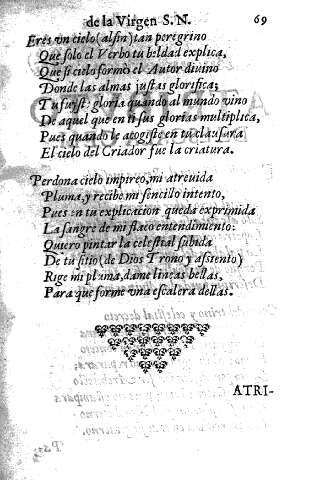 de la Virgen S. N. 69
Eres vn cielo (al fin) tan peregrino
Que solo el Verbo tu beldad explica,
Que si cielo formò el Autor diuino
Donde las almas justas glorifica;
Tu fuyste gloria quando al mundo vino
De aquel que en ti sus glorias multiplica,
Pues quando le acogiste en tu clausura
El cielo del Criador fue la criatura.
Perdona cielo impireo, mi atreuida
Pluma, y recibe mi sencillo intento,
Pues en tu explicacion queda exprimida
La sangre de mi flaco entendimiento:
Quiero pintar la celestial subida
De tu sitio (de Dios Trono y assiento)
Rige mi pluma, dame lineas bellas,
Para que forme vna escalera dellas.
ATRI-